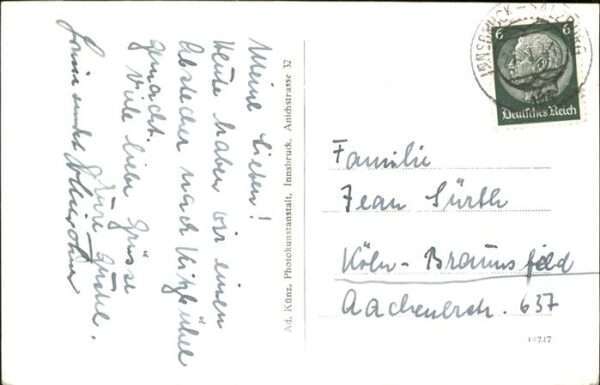 Meine Lieben!
Heute haben wir einen
Abstecher nach Kitzbühel
gemacht.
Viele liebe Grüsse
Eure
Ad. Künz, Photokunstanstalt, Innsbruck, Anichstrasse 32
INNSBRUCK - SALZBURG
6 6
Deutsches Reich
Familie
Jean Sürth
Köln-Braunsfeld
Aachenerstr. 637
10747